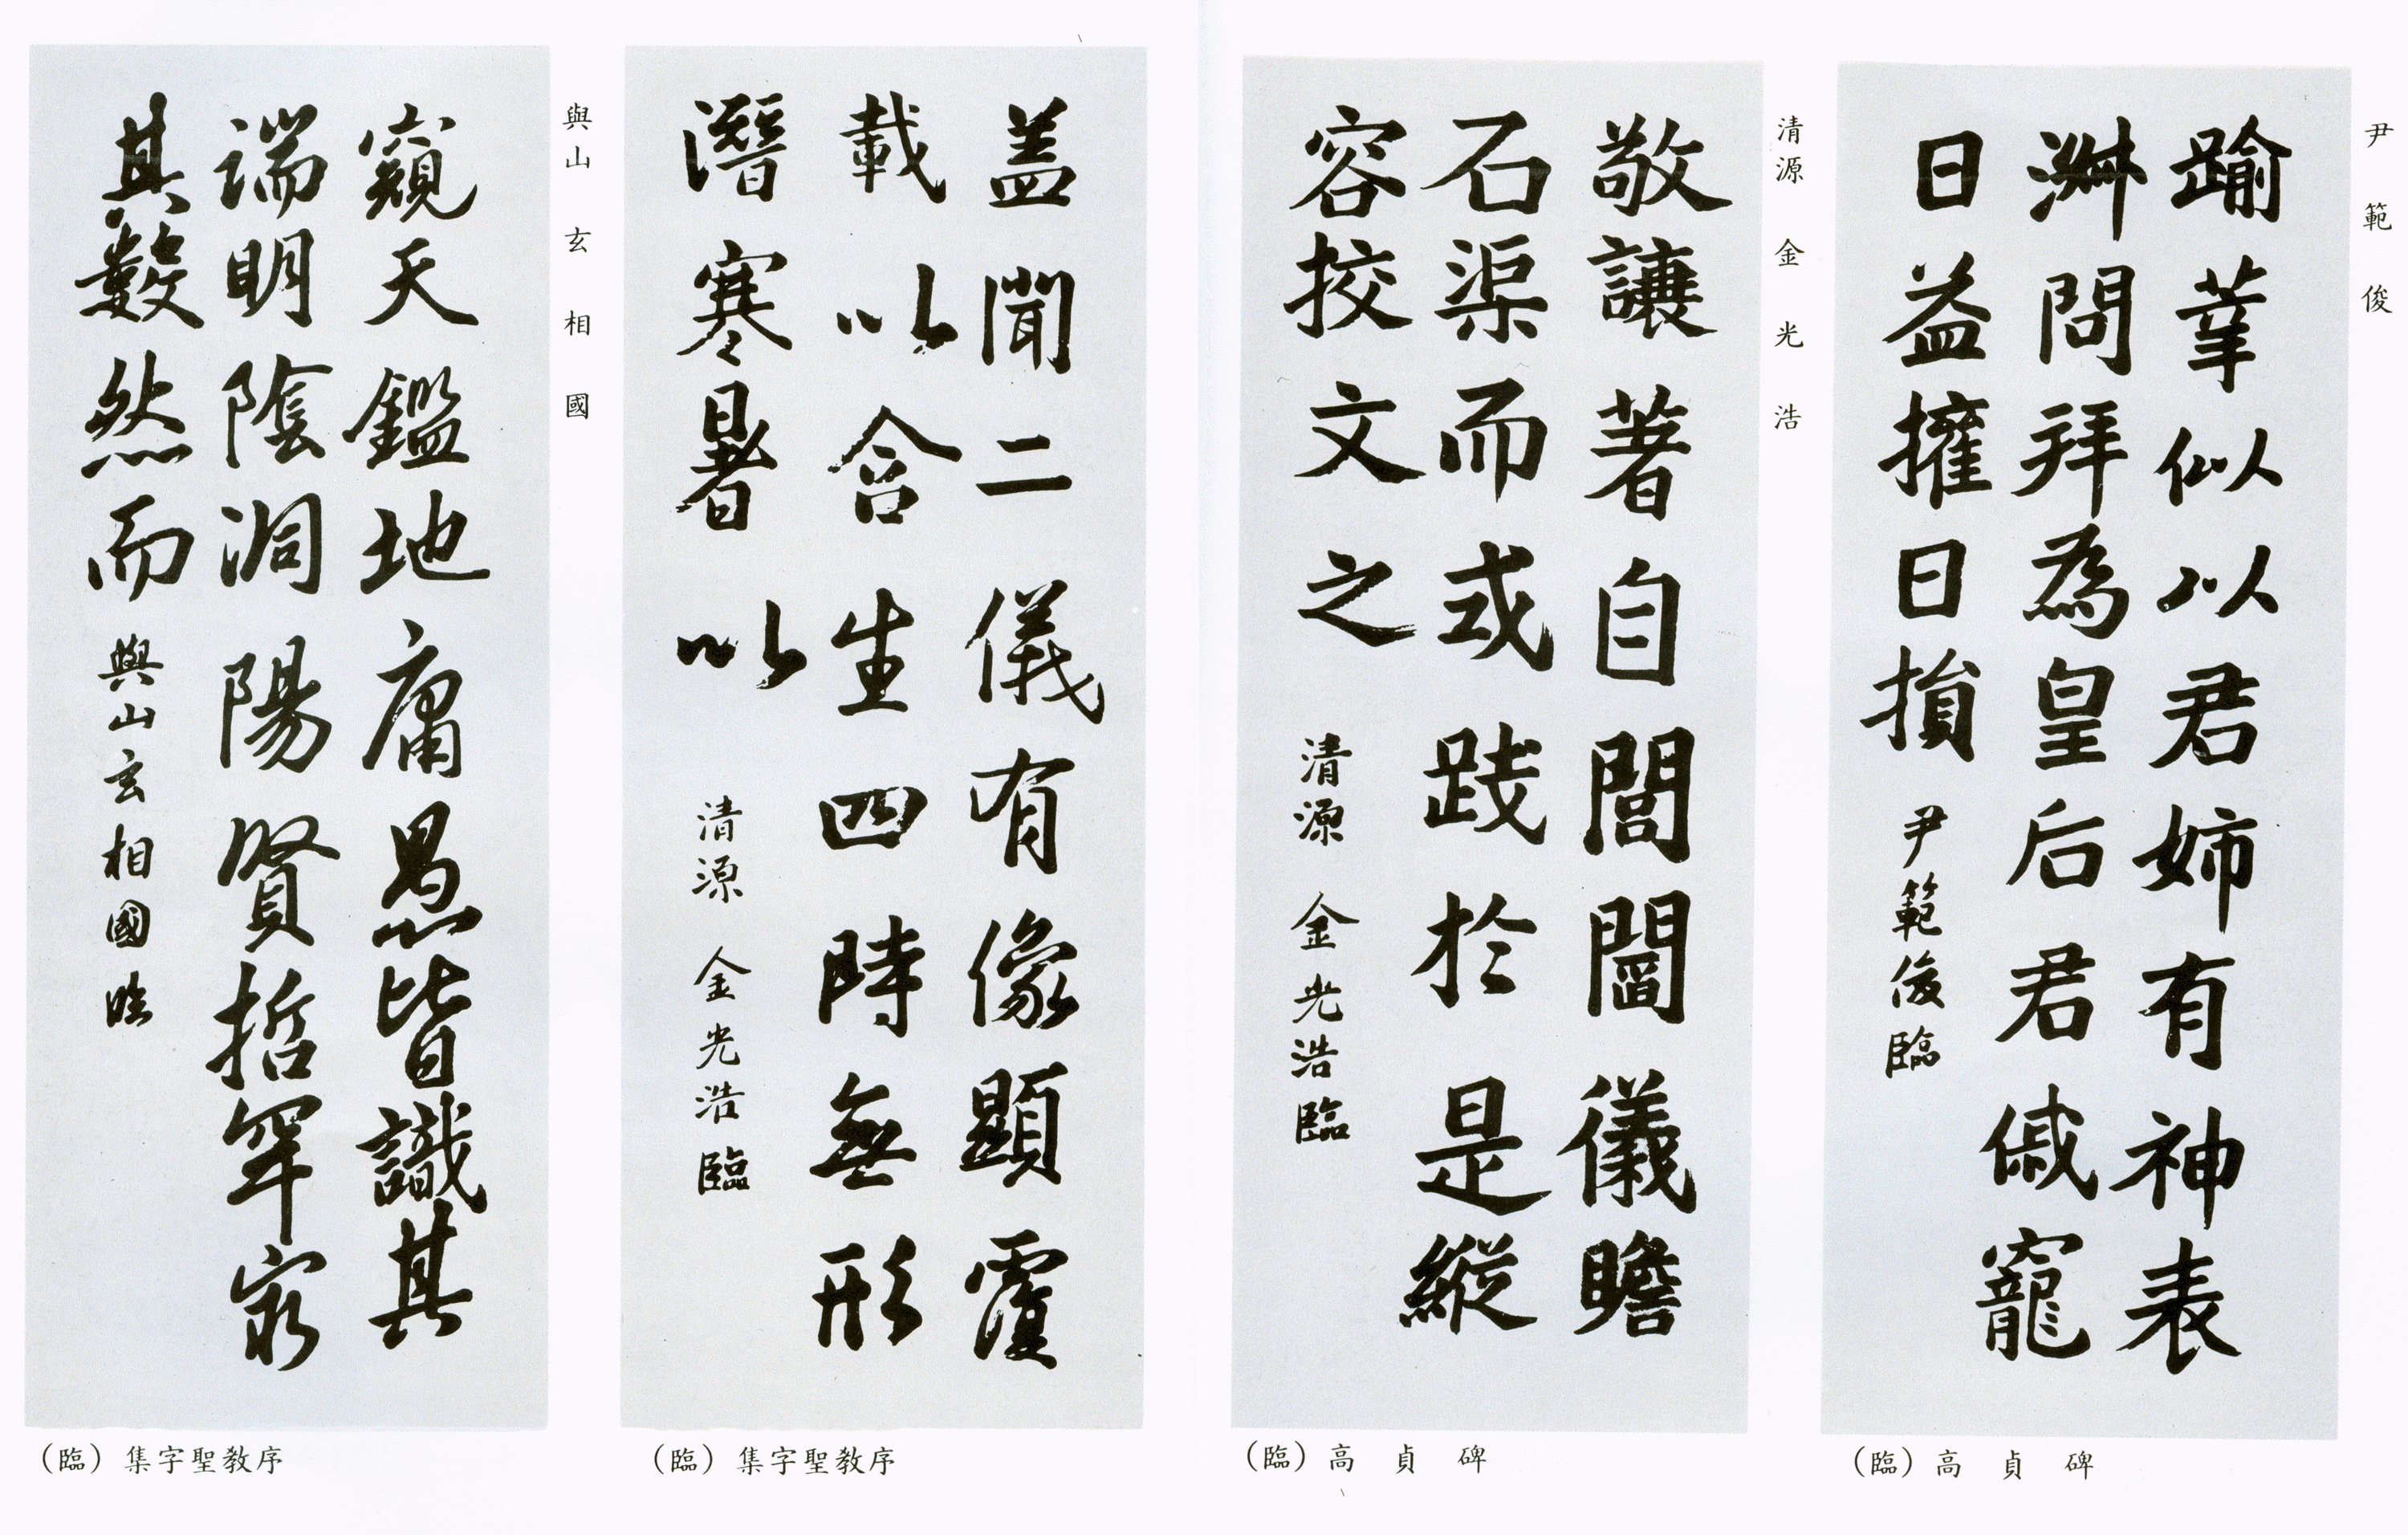 尹範俊
踰葦似以君姉有神表
淋問拜為皇后君戚寵
日益擁日損
尹範俊臨
(臨) 高貞碑
清源 金光浩
敬讓著自閨閫儀瞻
石渠而或踐於是縱
容挍文之
清源 金光浩臨
(臨) 高貞碑
盖聞二儀有像顯覆
載以含生四時無形
潛寒暑以
清源 金光浩臨
(臨) 集字聖教序
與山 玄相國
窺天鑑地庸愚皆識其
端明陰洞陽賢哲罕窮
其數然而
與山玄相國臨
(臨) 集字聖教序